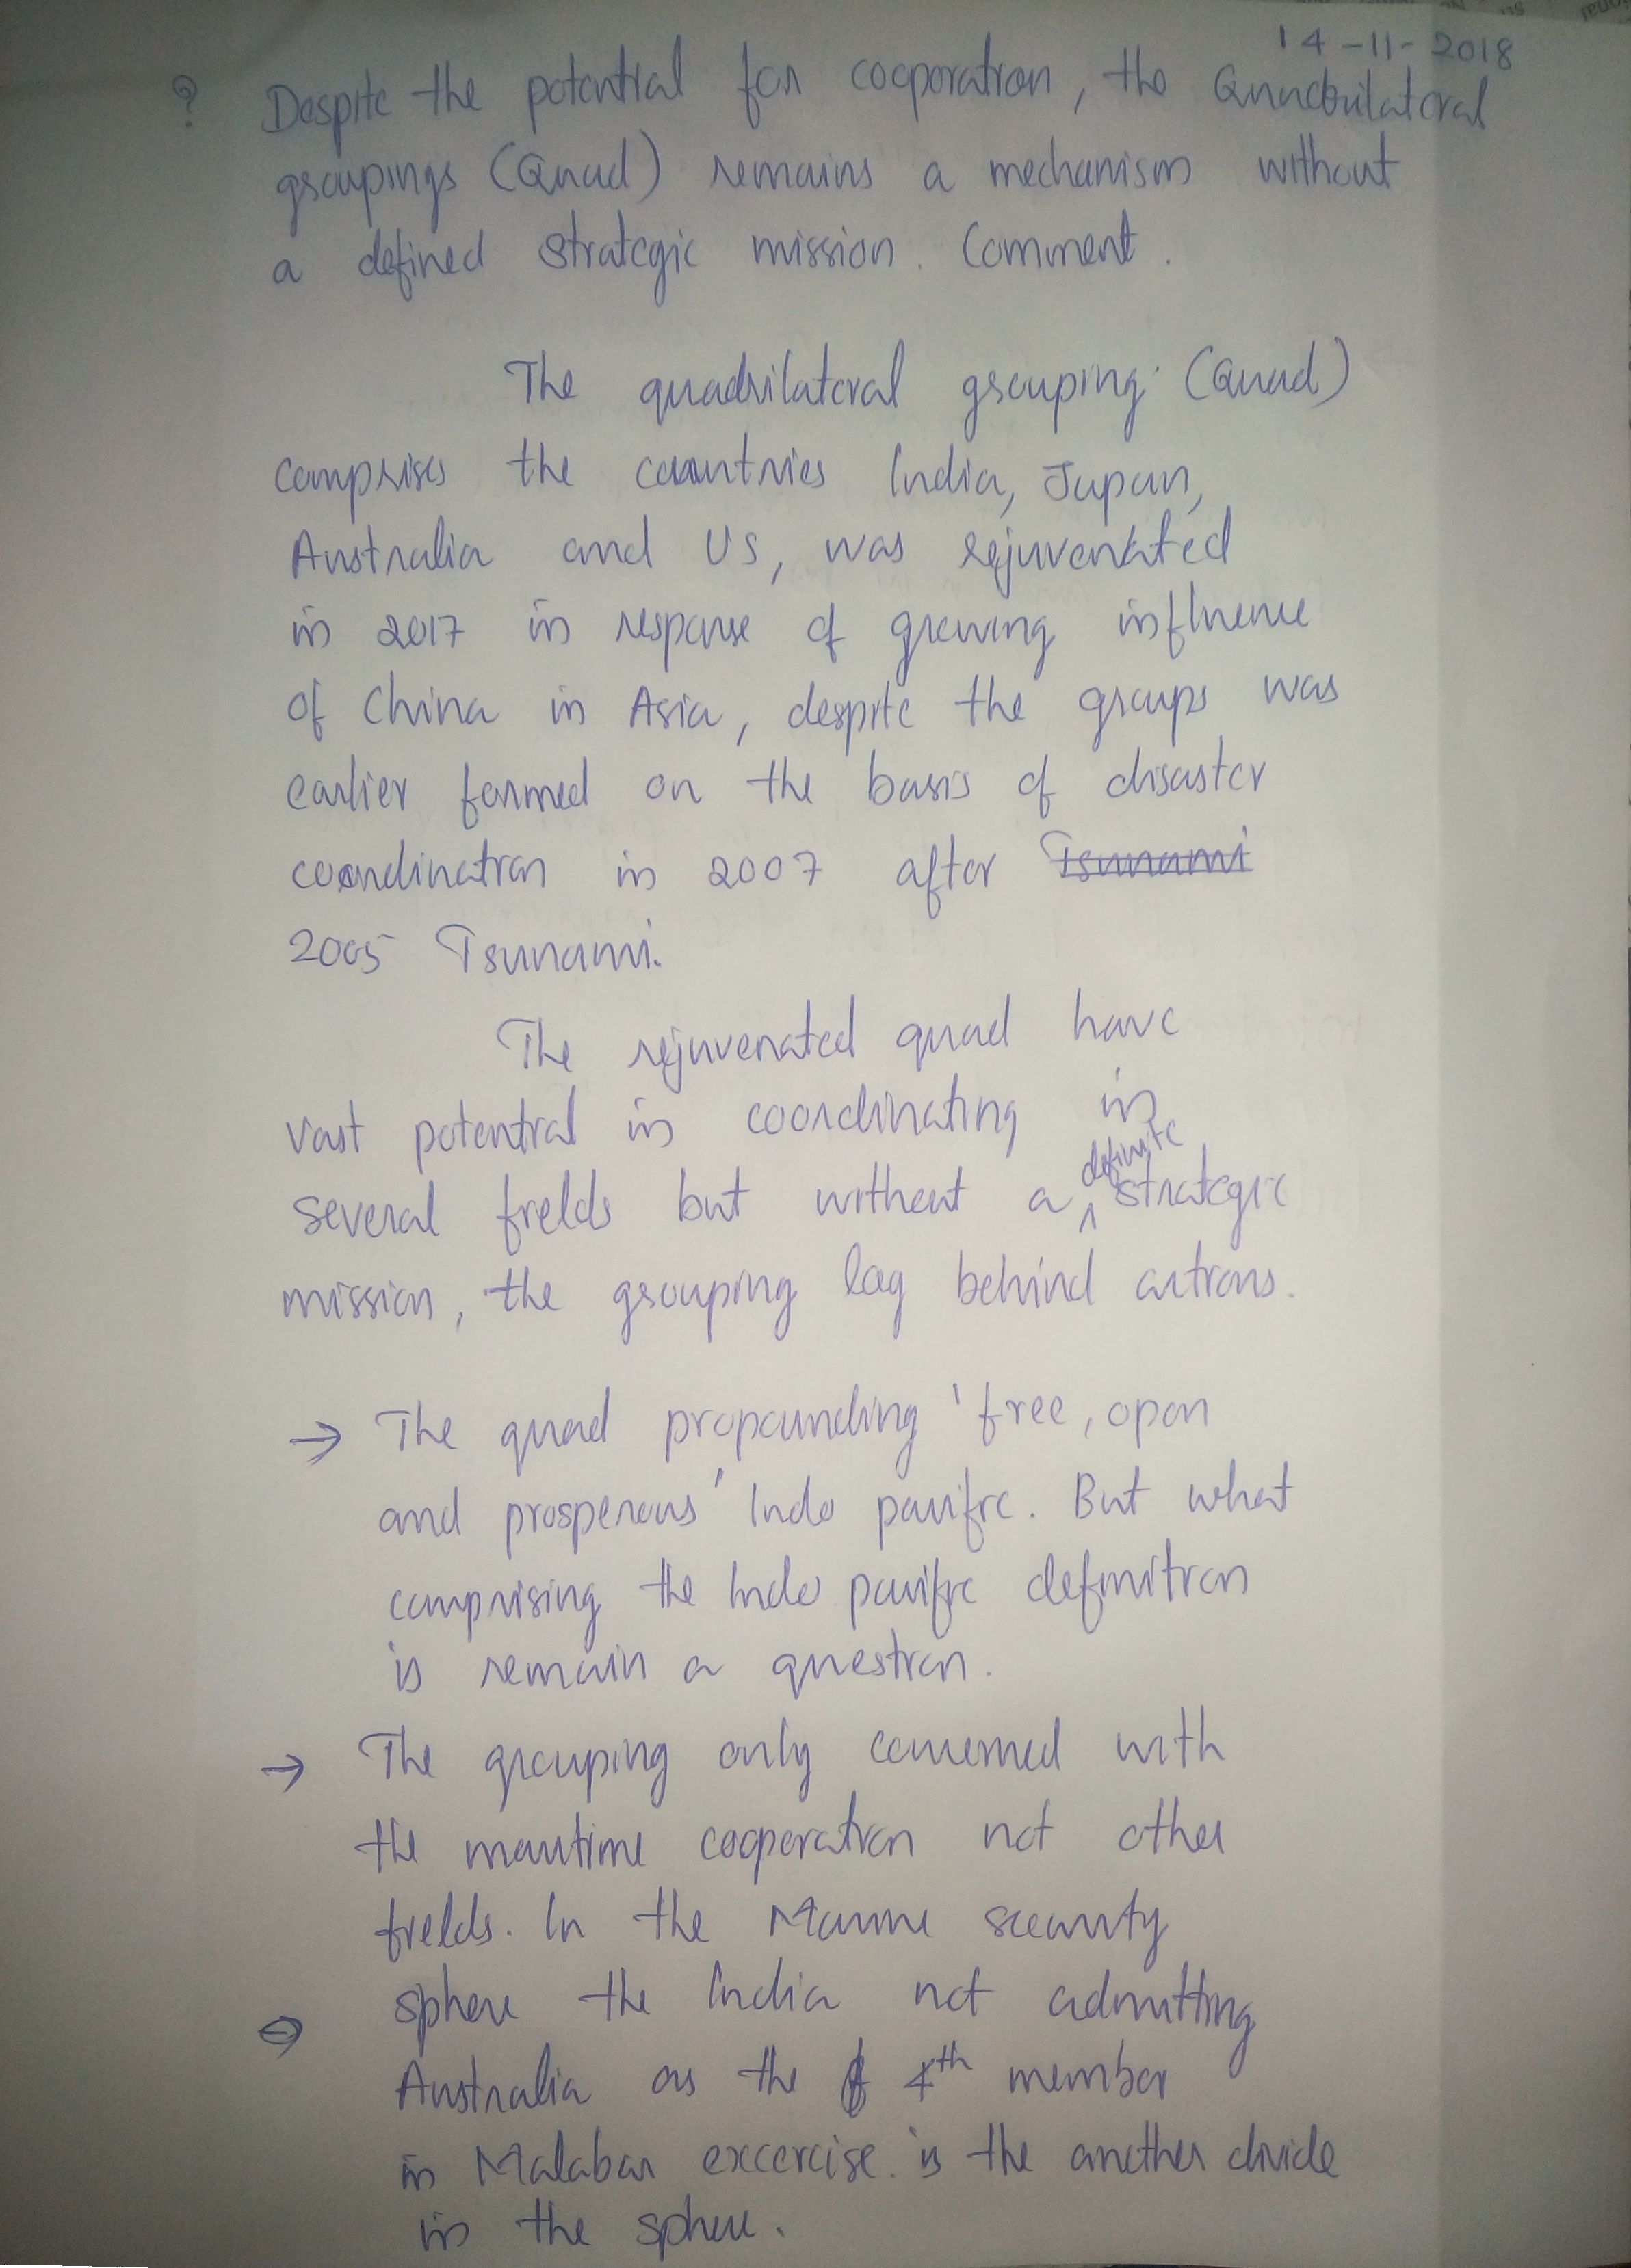 14-11-2018
? Despite the potential for cooporation, the Quadrilateral
groupings (Quad) remains a mechanism without
a defined strategic mission. Comment.
The quadrilateral grouping (Quad)
comprises the countries India, Japan,
Australia and US, was rejuvenated
in 2017 in response of growing influence
of China in Asia, despite the groups was
earlier formed on the basis of disaster
coordination in 2007 after Tsunami
2005 Tsunami.
The rejuvenated quad have
vast potential in coordinating in
several fields but without a definite strategic
mission, the grouping lag behind actions.
→ The quad propounding 'free, open
and prosperous' Indo pacific. But what
comprising the Indo pacific definition
is remain a question.
→ The grouping only concerned with
the maritime cooperation not other
fields. In the Marine security
→ sphere the India not admitting
Australia as the 4th member
in Malabar excercise. is the another divide
in the sphere.